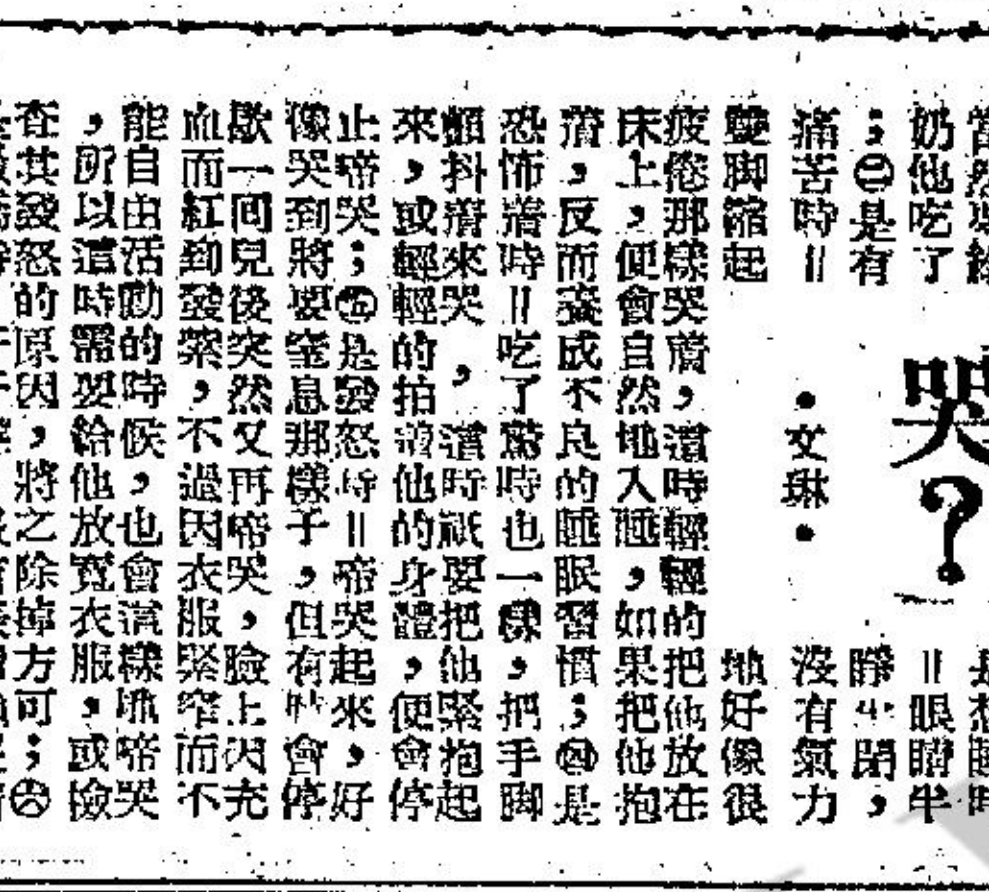 奶他吃了
；㊂是有
痛苦時＝
雙脚縮起
哭？
•文琳•
＝眼睛半
睜半閉，
沒有氣力
地好像很
疲倦那樣哭着，這時輕輕的把他放在
床上，便會自然地入睡，如果把他抱
着，反而養成不良的睡眠習慣；㊃是
恐怖着時＝吃了驚時也一樣，把手脚
顫抖着來哭，這時祇要把他緊抱起
來，或輕輕的拍着他的身體，便會停
止啼哭；㊄是發怒時＝啼哭起來，好
像哭到將要窒息那樣子，但有時會停
歇一回兒後突然又再啼哭，臉上因充
血而紅到發紫，不過因衣服緊窄而不
能自由活動的時候，也會這樣地啼哭
，所以這時需要給他放寬衣服，或檢
查其發怒的原因，將之除掉方可；㊅